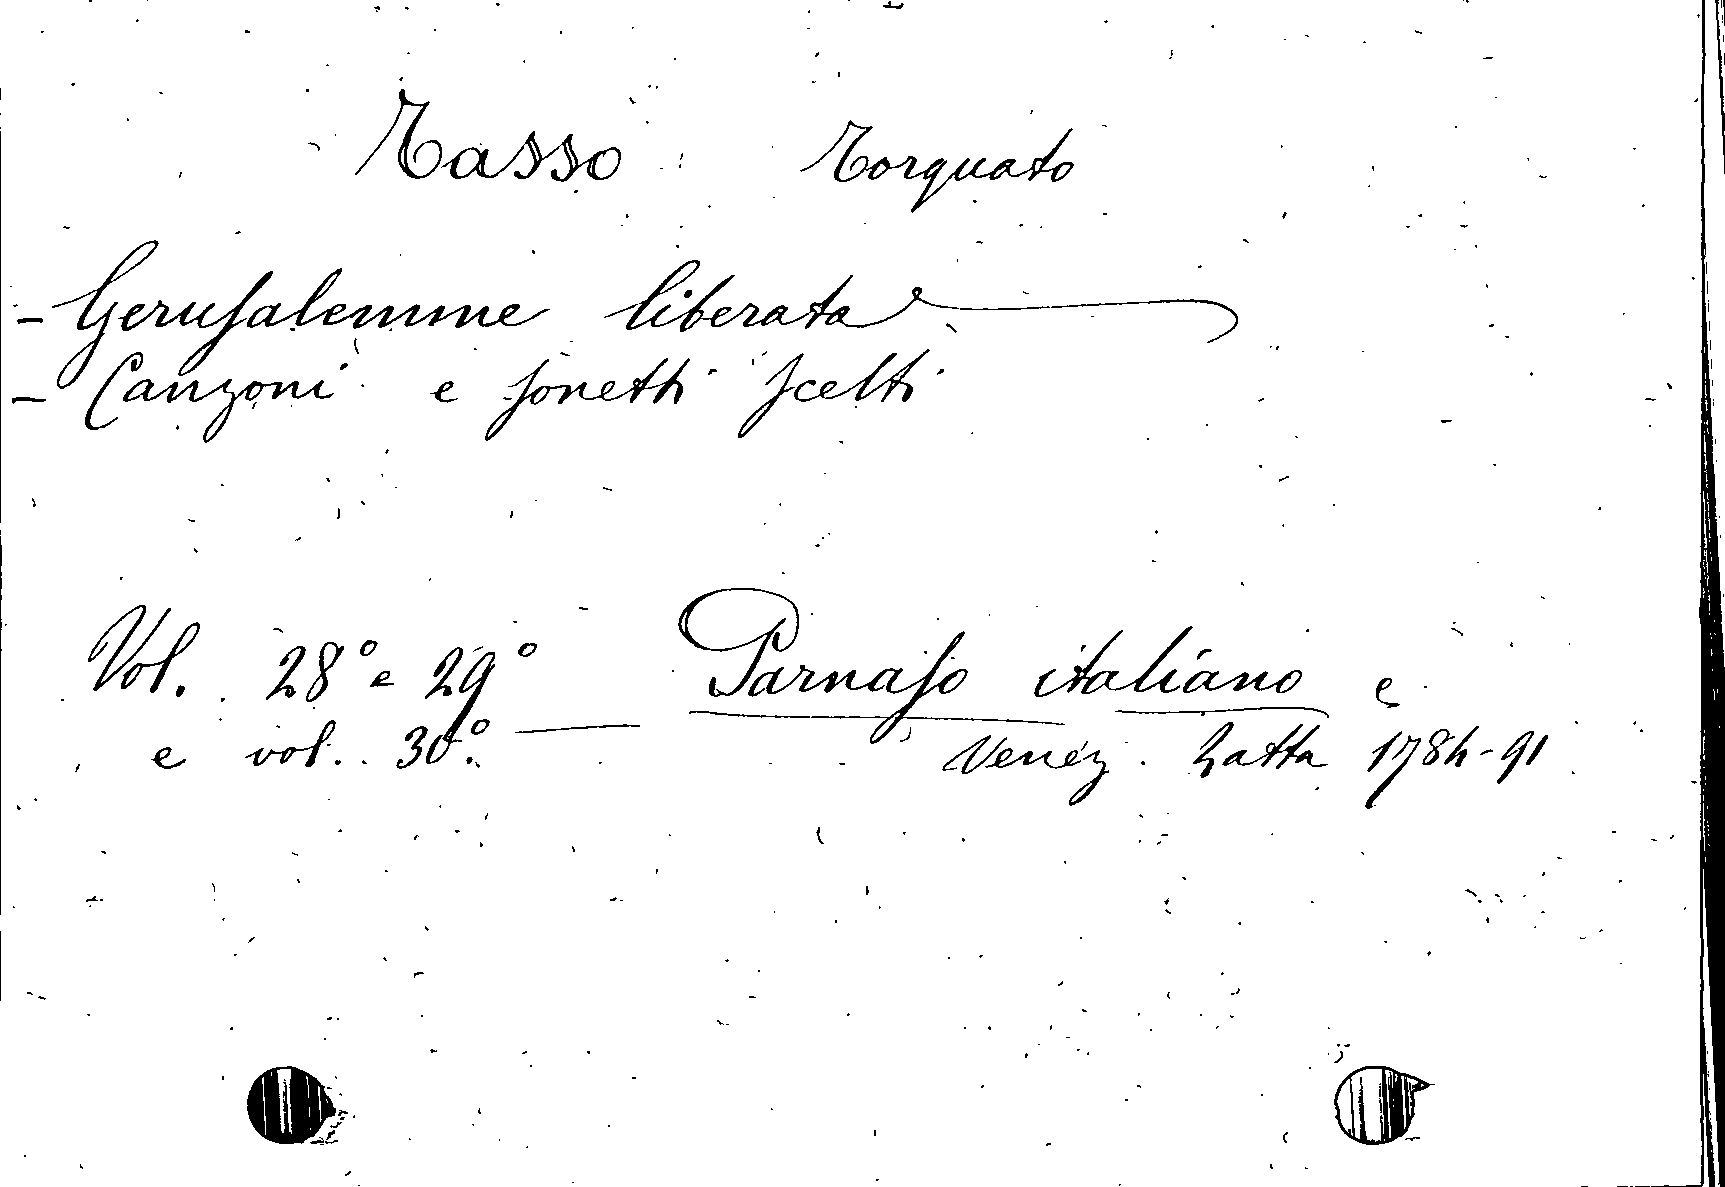 Tasso Torquato
- Gerusalemme liberata
- Canzoni e sonetti scelti
Vol. 28° e 29° Parnaso italiano e
e vol. 30° — Venez. Zatta 1784-91